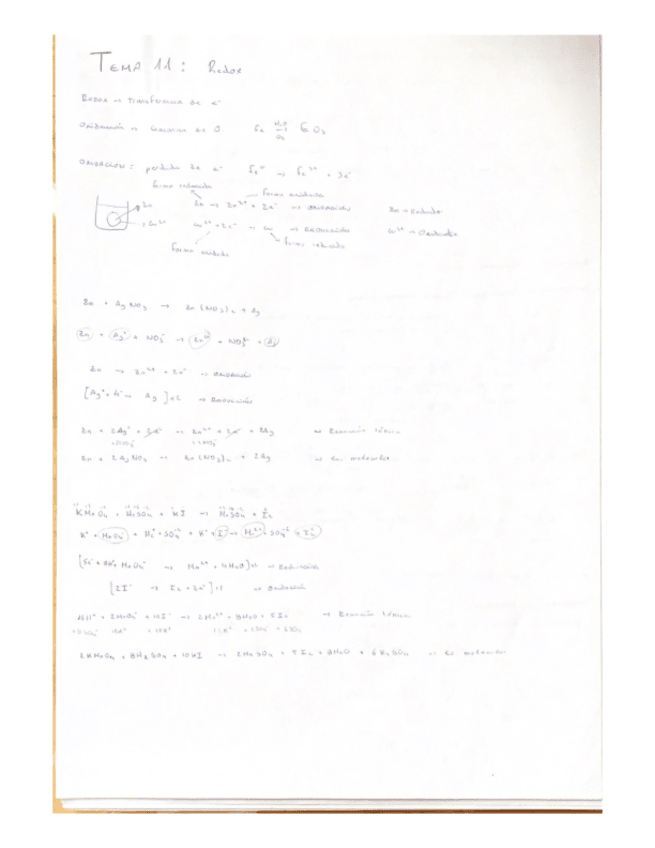 TEMA 11: Redox
REDOX → TRANSFERENCIA DE e⁻
Oxidación → O Fe H₂O O₂ O₃
OXIDACIÓN = perdida de e⁻ Fe → Fe³⁺ + 3e⁻
forma reducida forma oxidada
Zn Zn → Zn²⁺ + 2e⁻ → OXIDACIÓN Zn → Reductor
Cu²⁺ Cu²⁺ + 2e⁻ → Cu → REDUCCIÓN Cu²⁺ → Oxidante
Forma oxidada forma reducida
Zn + AgNO₃ → Zn(NO₃)₂ + Ag
Zn + Ag⁺ + NO₃⁻ → Zn²⁺ + NO₃⁻ + Ag
Zn → Zn²⁺ + 2e⁻ → OXIDACIÓN
[Ag⁺ + 1e⁻ → Ag] x2 → REDUCCIÓN
Zn + 2Ag⁺ + 2e⁻ → Zn²⁺ + 2e⁻ + 2Ag → Ecuación iónica
+2NO₃⁻ +2NO₃⁻
Zn + 2AgNO₃ → Zn(NO₃)₂ + 2Ag → Ec. molecular
KMnO₄ + H₂SO₄ + KI → MnSO₄ + I₂
K⁺ + MnO₄⁻ + H⁺ + SO₄⁻² + K⁺ + I⁻ → Mn²⁺ + SO₄⁻² + I₂
[5e⁻ + 8H⁺ + MnO₄⁻ → Mn²⁺ + 4H₂O] x2 → Reducción
[2I⁻ → I₂ + 2e⁻] x5 → Oxidación
16H⁺ + 2MnO₄⁻ + 10I⁻ → 2Mn²⁺ + 8H₂O + 5I₂ → Ecuación iónica
2KMnO₄ + 8H₂SO₄ + 10KI → 2MnSO₄ + 5I₂ + 8H₂O + 6K₂SO₄ → Ec molecular